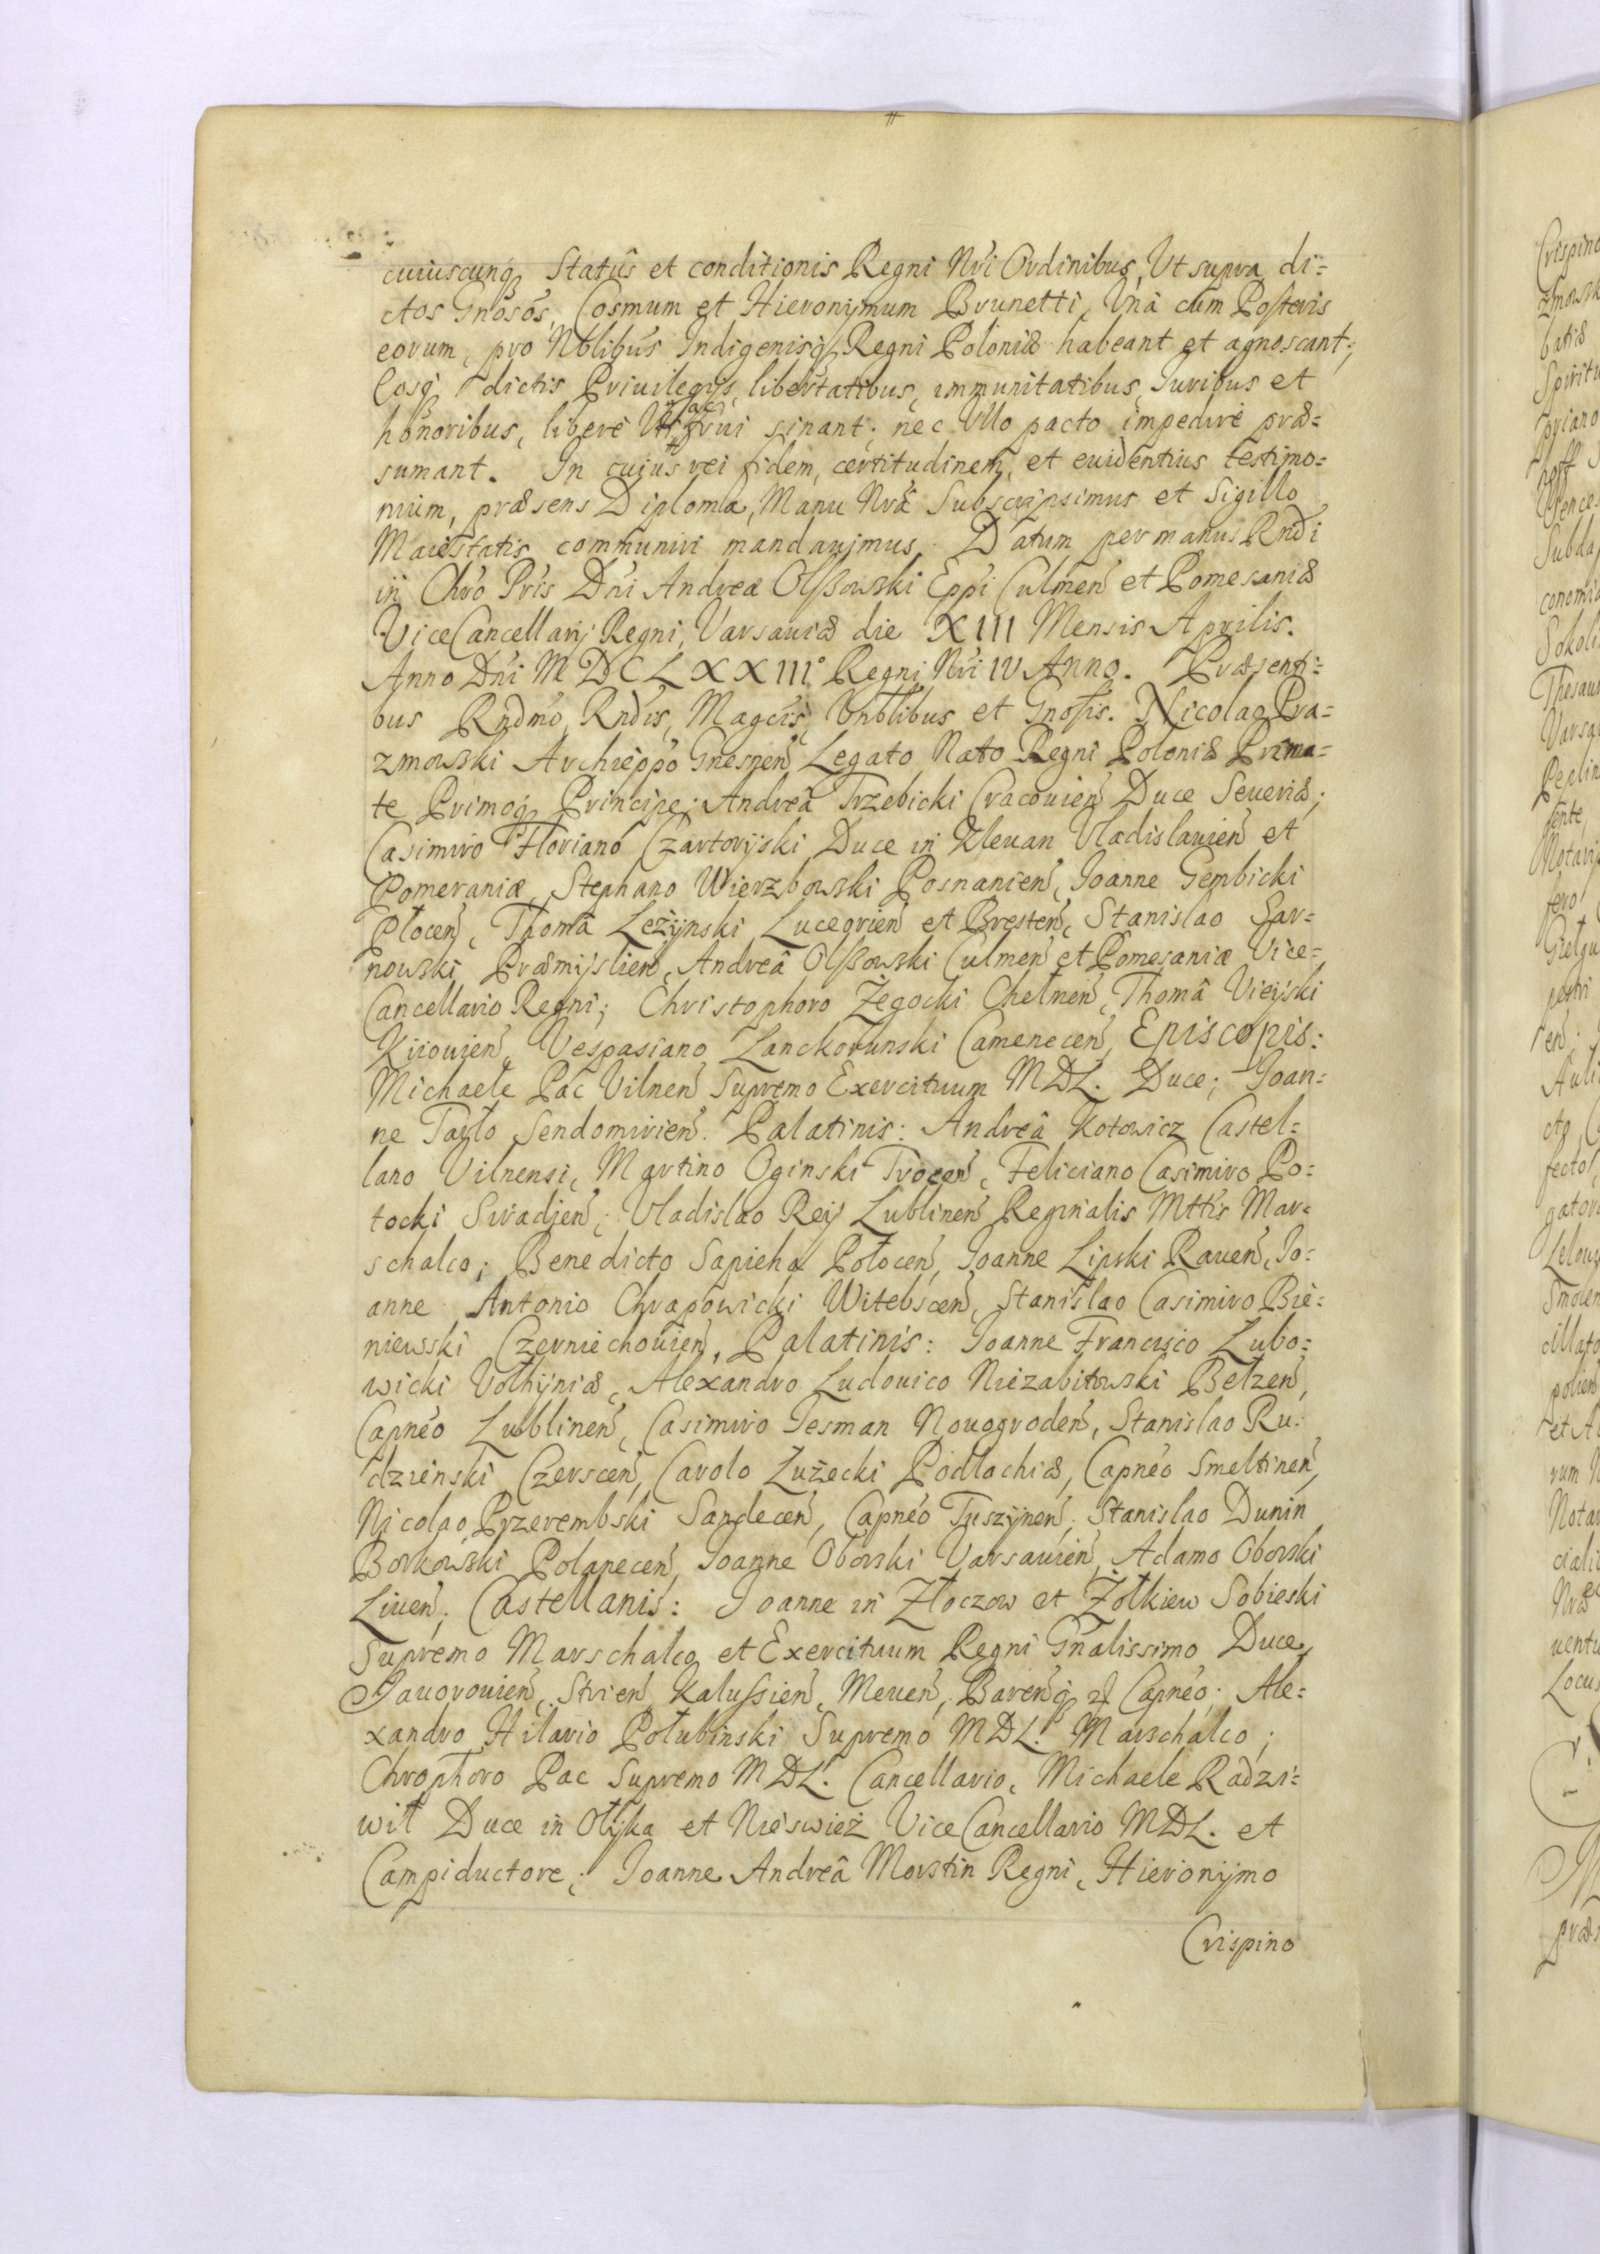 cuiuscunq Statûs et conditionis Regni Nri Ordinibus, Ut supra di=
ctos Gnosos, Cosmum et Hieronymum Brunetti, Unà cum Posteris
eorum, pro Nblibus Indigenisq Regni Poloniæ habeant et agnoscant;
Eosq dictis Priuilegijs, libertatibus, immunitatibus, Iuribus et
honoribus, liberè Uti ac frui sinant; nec Ullo pacto impedire præ=
sumant. In cuius rei fidem, certitudinem, et euidentius testimo=
nium, præsens Diploma, Manu Nrâ Subscripsimus et Sigillo
Maiestatis communiri mandauimus. Datum per manus Rndi
in Chro Pris Dni Andreæ Olssowski Eppi Culmen et Pomesaniæ
ViceCancellarij Regni, Varsauiæ die XIII Mensis Aprilis.
Anno Dni MDCLXXIII° Regni Nri IV Anno. Præsenti=
bus Rndmo, Rndis, Magcis, Unblibus et Gnosis. Nicolao Pra=
zmowski Archieppo Gnesnen Legato Nato Regni Poloniæ Prima=
te Primoq Principe; Andreâ Trzebicki Cracouien Duce Seueriæ;
Casimiro Floriano Czartoryski Duce in Kleuan Vladislauien et
Pomeraniæ, Stephano Wierzbowski Posnanien, Joanne Gembicki
Płocen, Thomâ Leżynski Luceorien et Bresten, Stanislao Sar=
nowski Præmyslien, Andreâ Olssowski Culmen et Pomesaniæ Vice=
Cancellario Regni; Christophoro Zegocki Chelmen, Thomâ Vieyski
Kijouien, Vespasiano Lanckorunski Camenecen, Episcopis:
Michaele Pac Vilnen Supremo Exercituum MDL. Duce; Joan=
ne Tarło Sendomirien. Palatinis: Andreâ Kotowicz Castel=
lano Vilnensi, Martino Oginski Trocen, Feliciano Casimiro Po=
tocki Siradien; Vladislao Rey Lublinen Reginalis Mttis Mar=
schalco; Benedicto Sapieha Połocen, Joanne Lipski Rauen, Jo=
anne Antonio Chrapowicki Witebscen, Stanislao Casimiro Bie=
niewski Czerniechouien, Palatinis: Joanne Francisco Lubo=
wicki Volhyniæ, Alexandro Ludouico Niezabitowski Bełzen,
Capneo Lublinen, Casimiro Tesman Nouogroden, Stanislao Ru=
dzieński Czerscen, Carolo Łużecki Podlachiæ, Capneo Smeltinen,
Nicolao Przerembski Sandecen, Capneo Tuszynen; Stanislao Dunin
Borkowski Polanecen, Joanne Oborski Varsauien, Adamo Oborski
Liuen, Castellanis: Joanne in Złoczow et Żołkiew Sobieski
Supremo Marschalco et Exercituum Regni Gnalissimo Duce,
Jauorouien, Strien, Kalussien, Meuen, Barenq Capneo; Ale=
xandro Hilario Połubinski Supremo MDL. Marschalco;
Chrophoro Pac Supremo MDL. Cancellario, Michaele Radzi=
wił Duce in Ołyka et Nieswież ViceCancellario MDL. et
Campiductore; Joanne Andreâ Morstin Regni, Hieronymo
Crispino